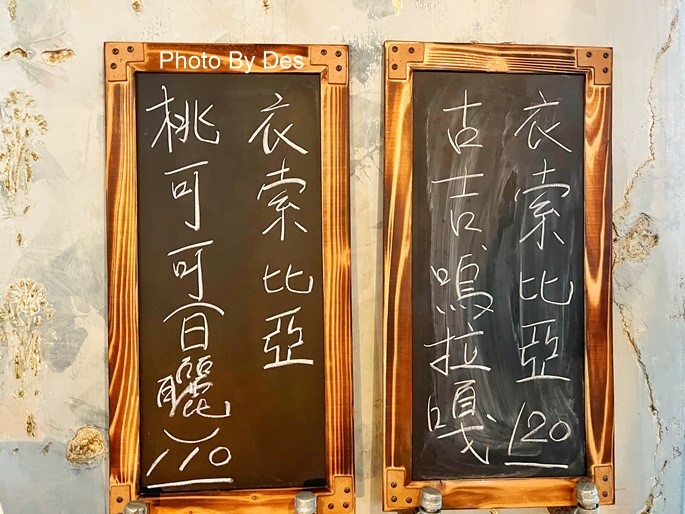 Photo By Des
衣索比亞
古吉嗚拉嘎
120
衣索比亞
桃可可(日曬)
110